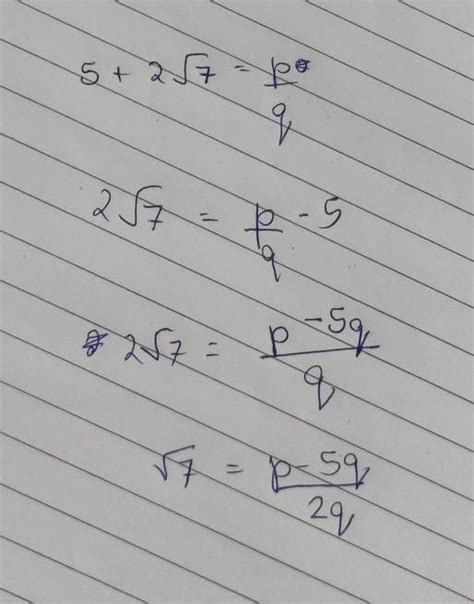 5 + 2√7 = p/q
2√7 = p/q - 5
2√7 = p - 5q/q
√7 = p - 5q/2q